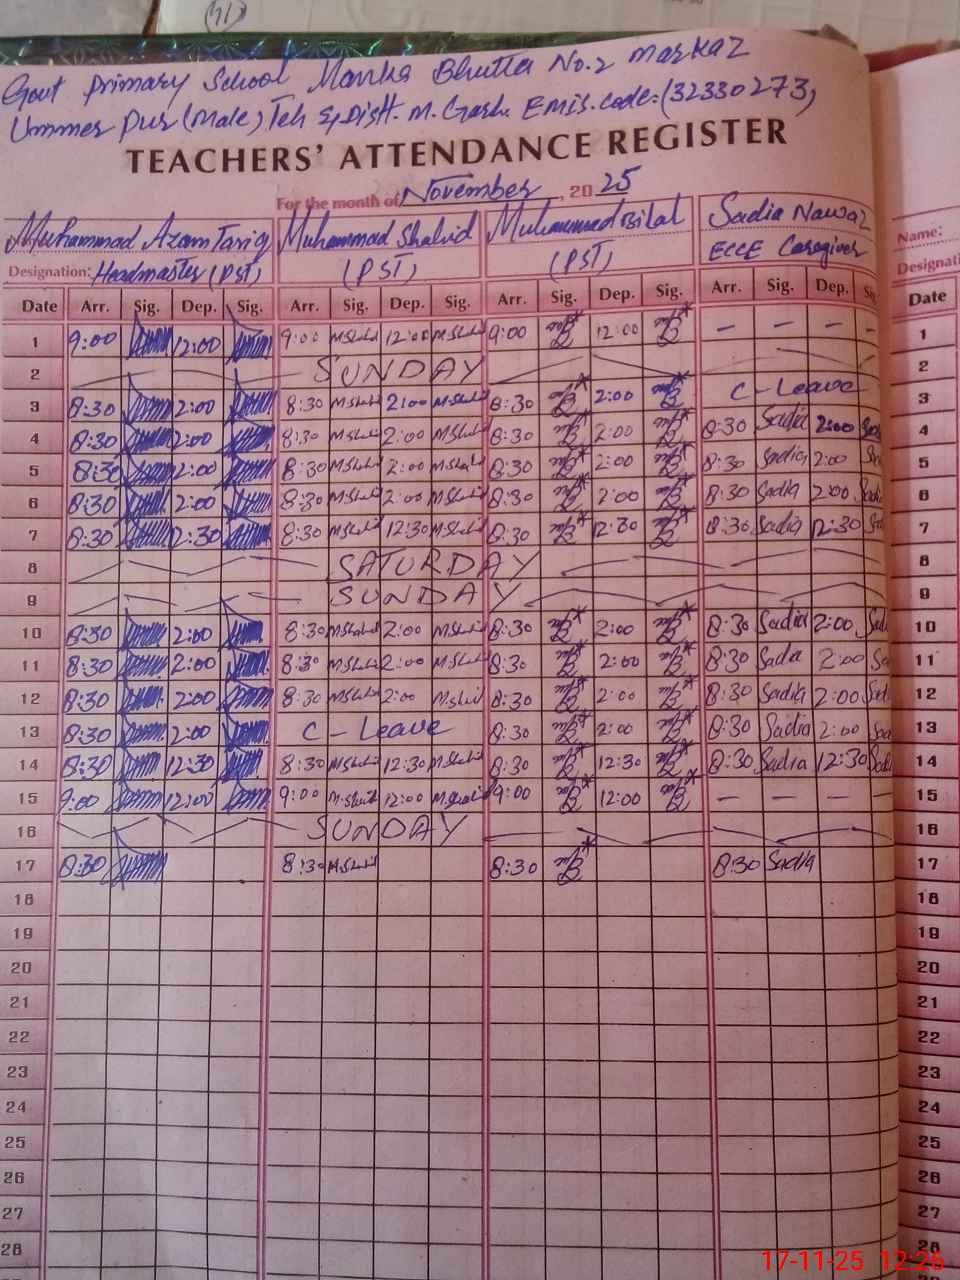 Govt Primary School Manka Bhutta No.2 markaz
Ummer Pur (Male) Teh & Distt. M. Garh. EMIS.code:(32330273)
TEACHERS' ATTENDANCE REGISTER
For the month of November, 20 25
Muhammad Azam Tariq Muhammad Shahid Muhammad Bilal Sadia Nawaz Name:
Designation: Headmaster (PST) (PST) (PST) ECCE Caregiver Designati
Date Arr. Sig. Dep. Sig. Arr. Sig. Dep. Sig. Arr. Sig. Dep. Sig. Arr. Sig. Dep. Si Date
1 9:00 12:00 9:00 M.Shahid 12:00 M.Shahid 9:00 mB 12:00 mB — — — — 1
2 SUNDAY 2
3 8:30 2:00 8:30 M.Shahid 2:00 M.Shahid 8:30 mB 2:00 mB C-Leave 3
4 8:30 2:00 8:30 M.Shahid 2:00 M.Shahid 8:30 mB 2:00 mB 8:30 Sadia 2:00 Sadi 4
5 8:30 2:00 8:30 M.Shahid 2:00 M.Shahid 8:30 mB 2:00 mB 8:30 Sadia 2:00 Sa 5
6 8:30 2:00 8:30 M.Shahid 2:00 M.Shahid 8:30 mB 2:00 mB 8:30 Sadia 2:00 Sadia 6
7 8:30 12:30 8:30 M.Shahid 12:30 M.Shahid 8:30 mB 12:30 mB 8:30 Sadia 12:30 Sa 7
8 SATURDAY 8
9 SUNDAY 9
10 8:30 2:00 8:30 M.Shahid 2:00 M.Shahid 8:30 mB 2:00 mB 8:30 Sadia 2:00 Sad 10
11 8:30 2:00 8:30 M.Shahid 2:00 M.Shahid 8:30 mB 2:00 mB 8:30 Sadia 2:00 Sa 11
12 8:30 2:00 8:30 M.Shahid 2:00 M.Shahid 8:30 mB 2:00 mB 8:30 Sadia 2:00 Sad 12
13 8:30 2:00 C-Leave 8:30 mB 2:00 mB 8:30 Sadia 2:00 Sa 13
14 8:30 12:30 8:30 M.Shahid 12:30 M.Shahid 8:30 mB 12:30 mB 8:30 Sadia 12:30 Sad 14
15 9:00 12:00 9:00 M.Shahid 12:00 M.Shahid 9:00 mB 12:00 mB — — — — 15
16 SUNDAY 16
17 8:30 8:30 M.Shahid 8:30 mB 8:30 Sadia 17
18 18
19 19
20 20
21 21
22 22
23 23
24 24
25 25
26 26
27 27
28 28
17-11-25 12:26